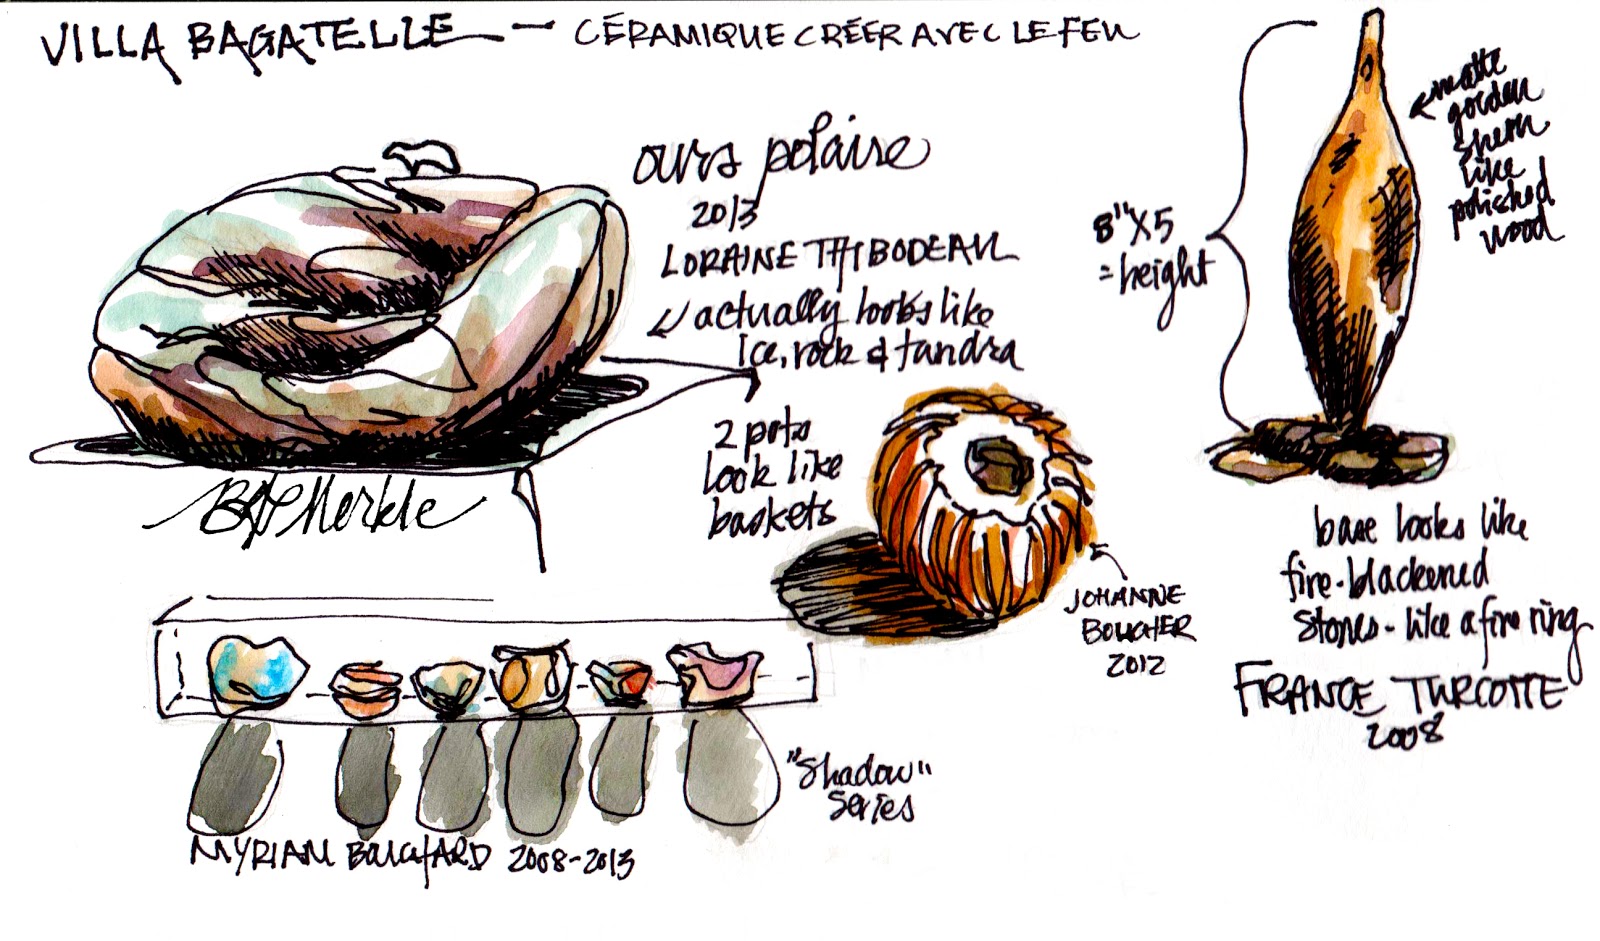 VILLA BAGATELLE — CÉRAMIQUE CRÉER AVEC LE FEU
ours polaire
2013
LORAINE THIBODEAU
actually looks like
ice, rock & tundra
2 pots
look like
baskets
JOHANNE
BOUCHER
2012
8" X 5
= height
matte
golden
sheen
like
polished
wood
base looks like
fire-blackened
stones - like a fire ring
FRANCE TURCOTTE
2008
"Shadow"
Series
MYRIAM BOUCHARD 2008-2013